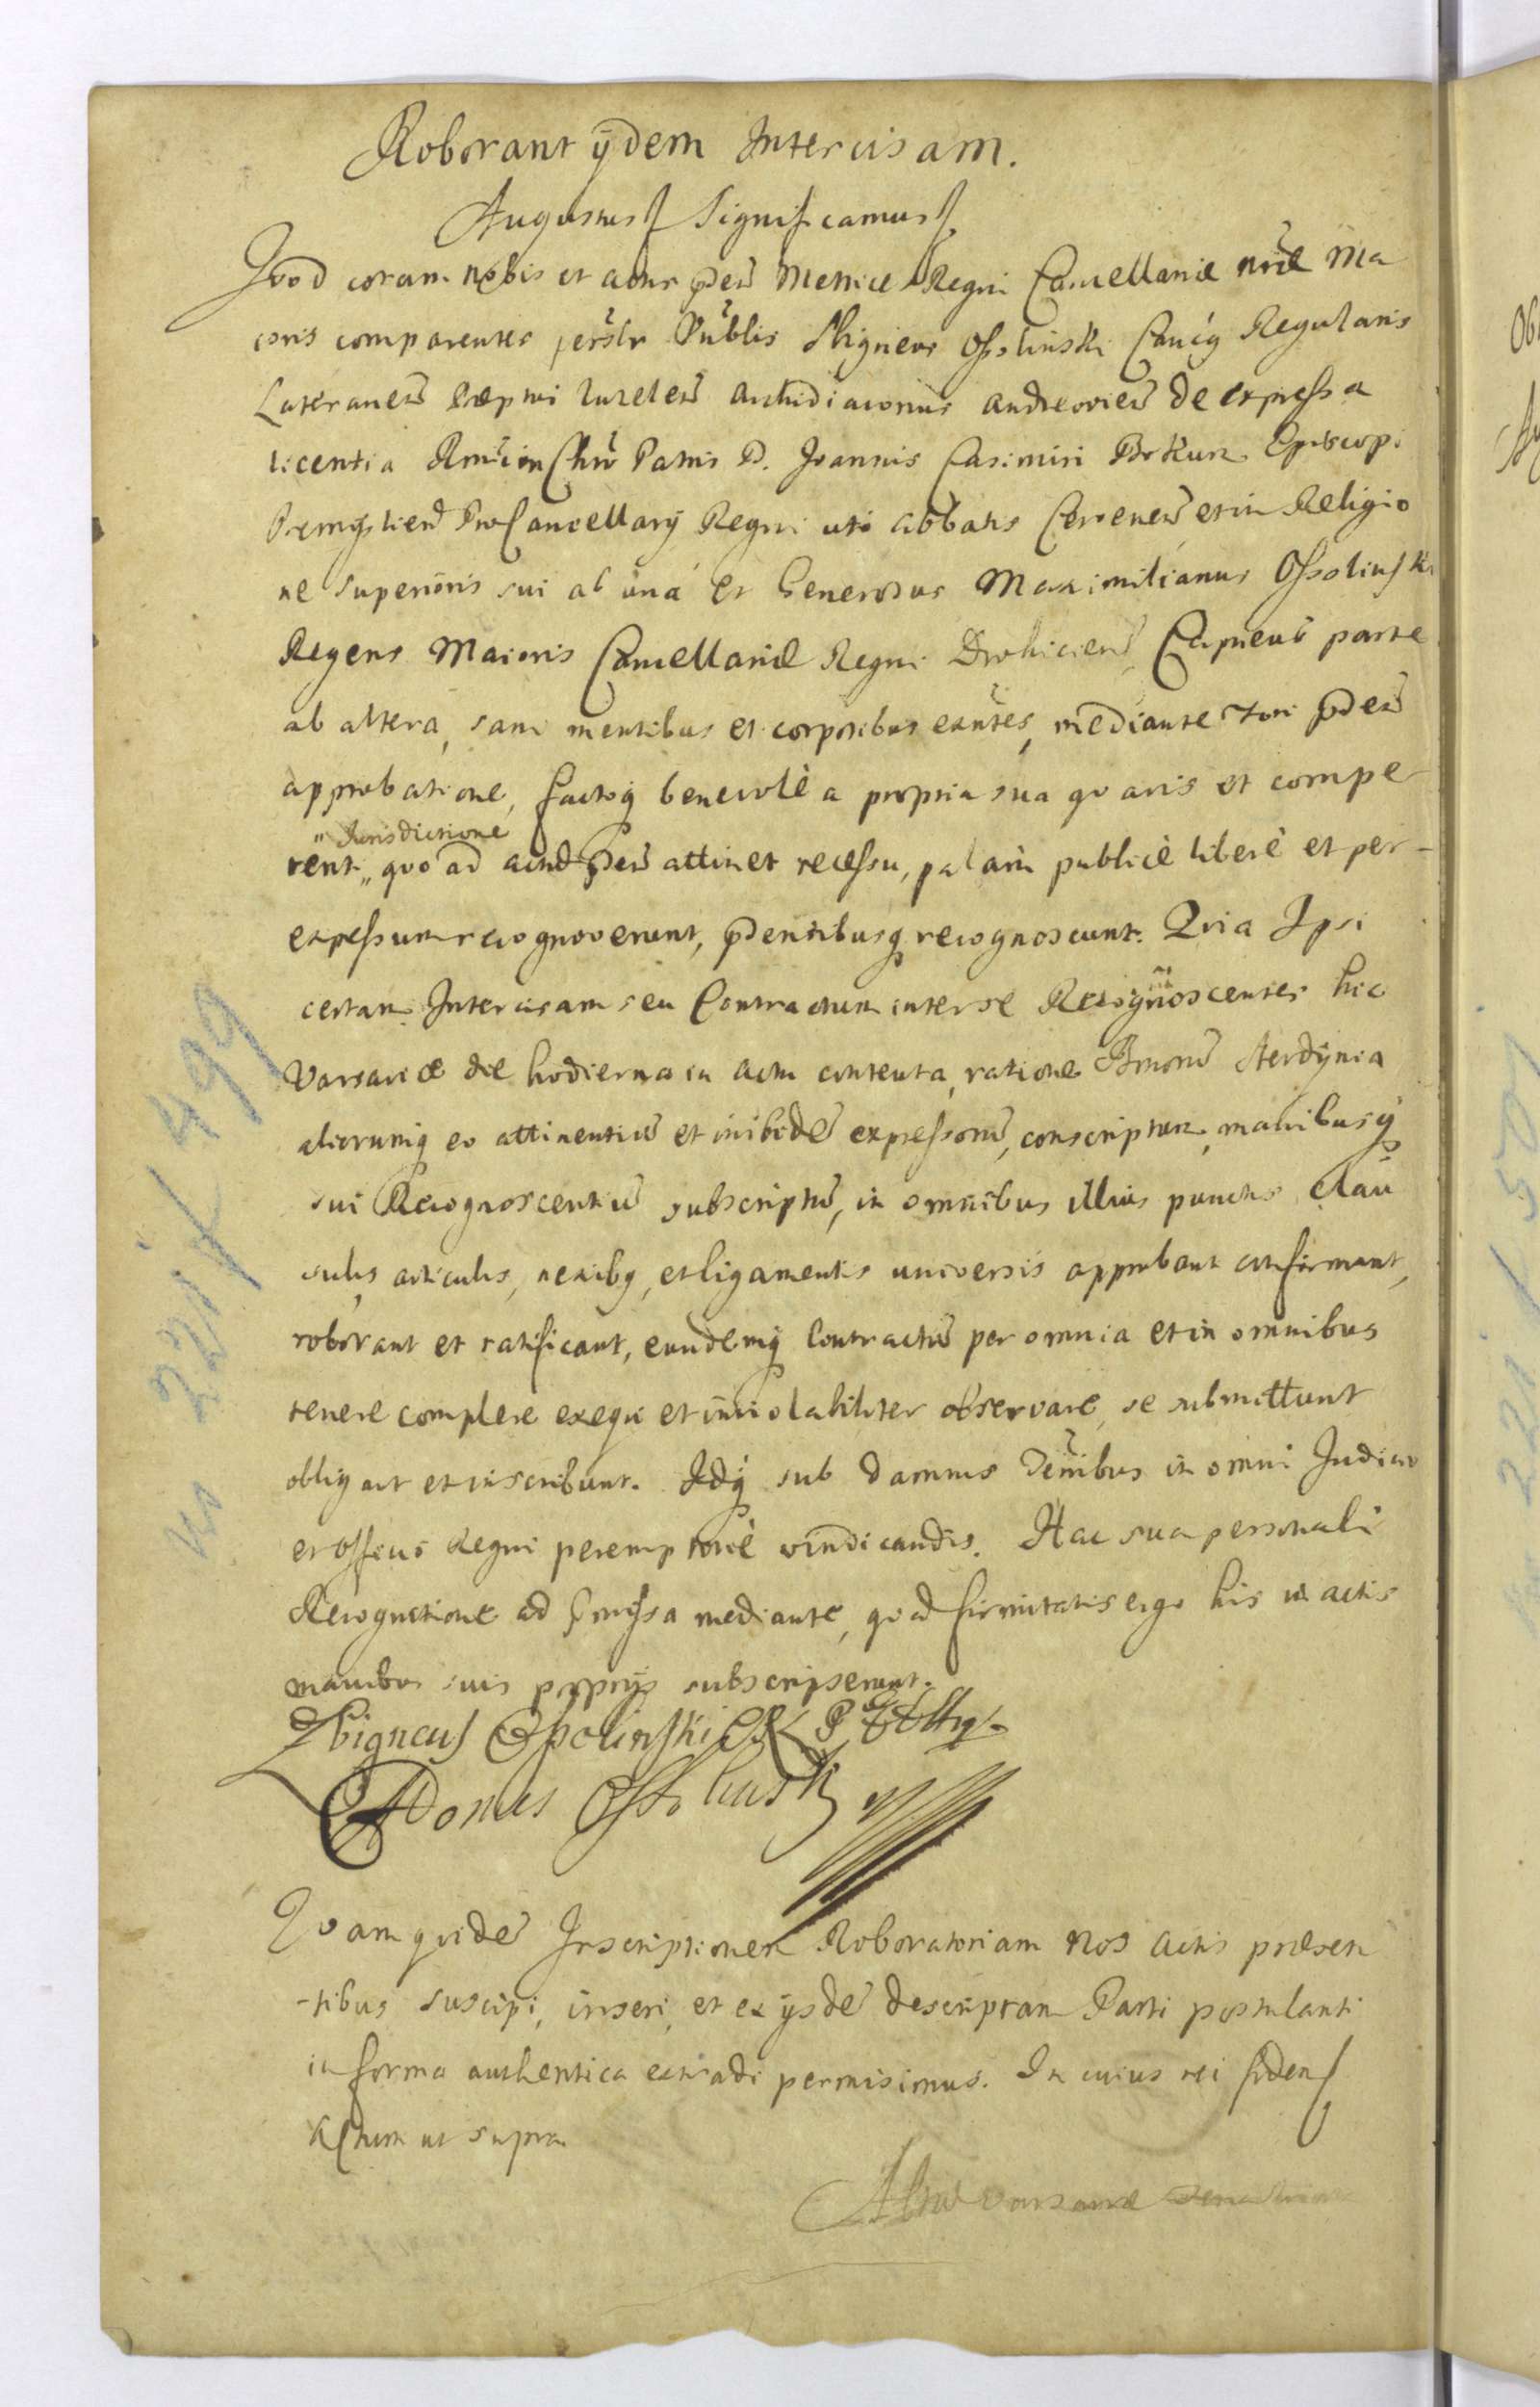 Roborant ijdem Intercisam.
Augustus Significamus
Quod coram nobis et actis pñt Metrices Regni Cancellariæ nræ Ma
ioris comparentes persłr Vnblis Sbigneus Ossolinski Canög Regularis
Lateranen Præptus Archidiaconus de expressa
licentia Rmi in Chro Patris D. Joannis Casimiri Bokum Episcopi
Præmysłien ProCancellarij Regni uti Abbatis Cervenen et in Religio
ne superioris sui ab una et Generosus Maximilianus Ossolinski
Regens Maioris Cancellariæ Regni Drohicien Capneus parte
ab altera, sani mentibus et corporibus exntes, mediante fori pñtis
approbatione, factoq benevole a propria sua qvavis et compe
tenti „ qvo ad actũ pñtẽ attinet recessu, palam publicè liberè et per
" Jurisdictione
expressum recognoverunt, pñtentibusq recognoscunt. Qvia Ipsi
certam Intercisam seu Contractum inter se Recognoscentes hic
Varsaviæ die hodierna in actu contenta, ratione Bonorũ Sterdynia
aliorumq eo attinentiũ et inibidẽ expressorũ, conscriptum, manibusq
sui Recognoscentiũ subscriptũ, in omnibus illius punctis clau
sulis, articulis, nexibq, et ligamentis universis approbant confirmant,
roborant et ratificant, eundemq Contractũ per omnia et in omnibus
tenere complere exequi et inviolabiliter observare, se submittunt
obligant et inscribunt. Idq sub damnis in omni Judicio
et officio Regni peremptoriè vindicandis. Hac sua personali
Recognitione ad præmissa mediante, qvod firmitatis ergo his in actis
manibus suis proprijs subscripserunt.
Zbigneus Ossolinski
Ossolinski
Qvam qvidẽ Inscriptionem Roboratoriam Nos Actis præsen
-tibus suscipi, inseri, et ex ijsdẽ descriptam Parti postulanti
in forma authentica extradi permisimus. In cuius rei fidem
Actum ut supra
Actũ Varsaviæ